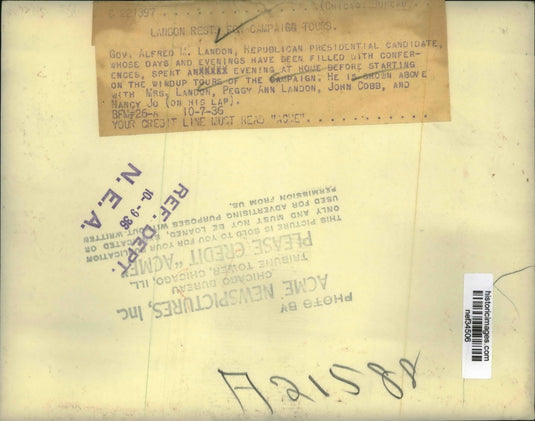 C 221397 (CHICAGO BUREAU)
LANDON RESTS FOR CAMPAIGN TOURS.
GOV. ALFRED M. LANDON, REPUBLICAN PRESIDENTIAL CANDIDATE,
WHOSE DAYS AND EVENINGS HAVE BEEN FILLED WITH CONFER-
ENCES, SPENT ANXXXXX EVENING AT HOME BEFORE STARTING
ON THE WINDUP TOURS OF THE CAMPAIGN. HE IS SHOWN ABOVE
WITH MRS. LANDON, PEGGY ANN LANDON, JOHN COBB, AND
NANCY JO (ON HIS LAP).
10-7-36
YOUR CREDIT LINE MUST READ "ACME"
REF. DEPT.
10-9-36
N. E. A.
PHOTO BY
ACME NEWSPICTURES, Inc.
CHICAGO BUREAU
TRIBUNE TOWER, CHICAGO, ILL.
PLEASE CREDIT "ACME"
THIS PICTURE IS SOLD TO YOU FOR YOUR PUBLICATION
ONLY AND MUST NOT BE LOANED, SYNDICATED OR
USED FOR ADVERTISING PURPOSES WITHOUT WRITTEN
PERMISSION FROM US.
historicimages.com
nef34506
A21588